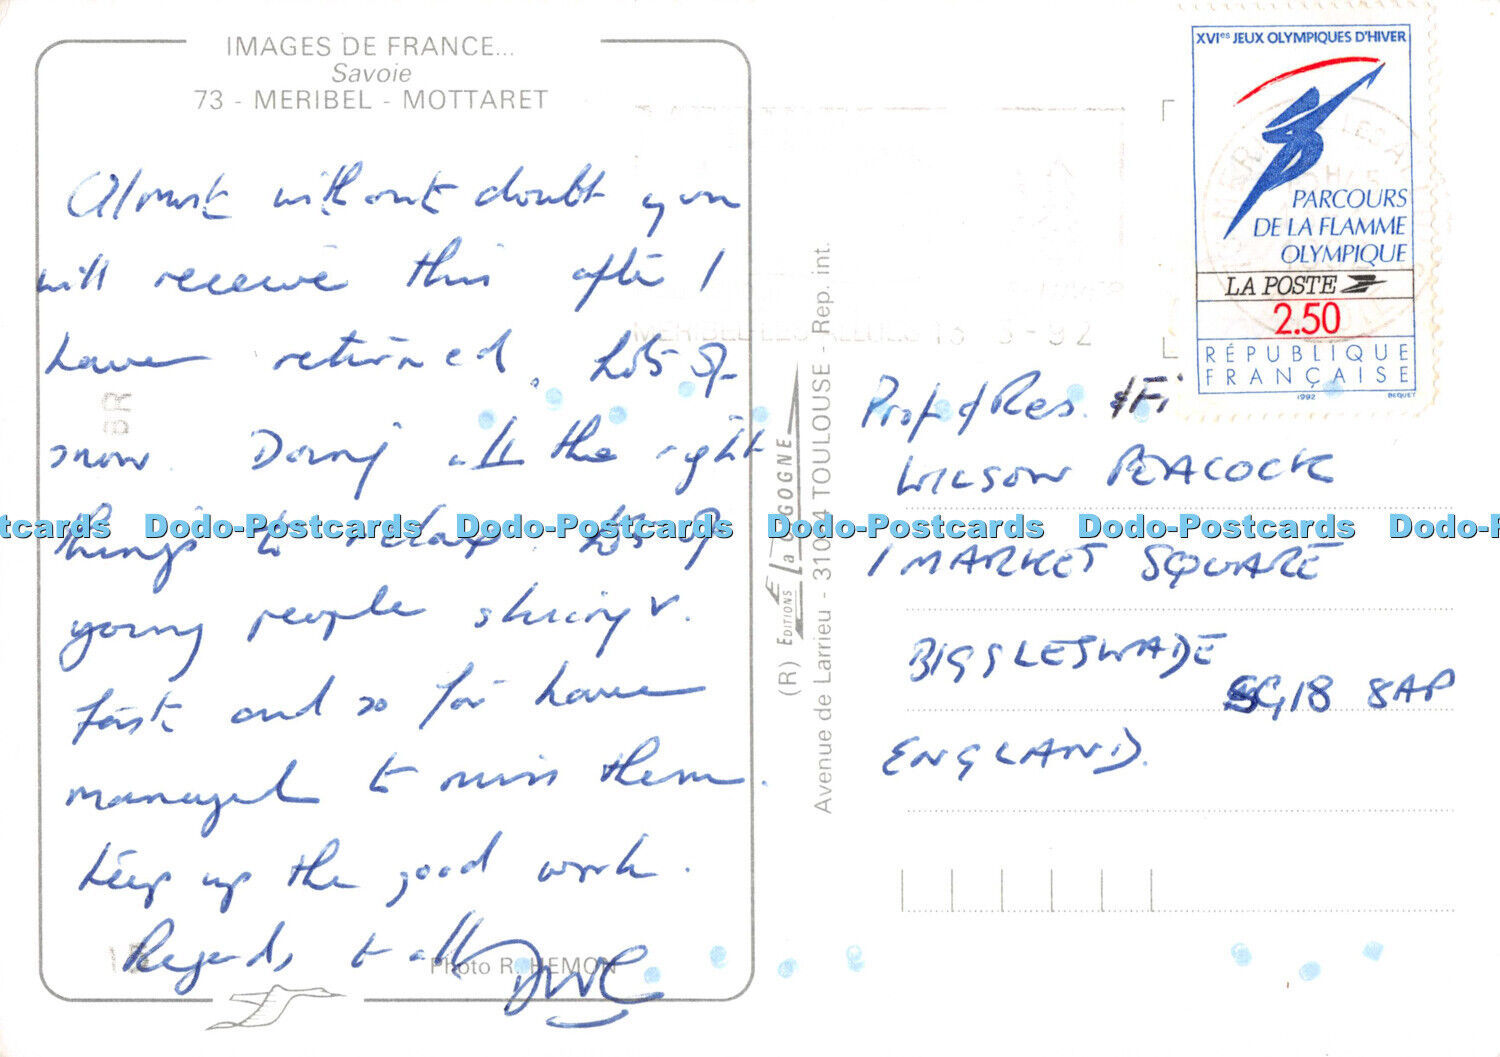 IMAGES DE FRANCE...
Savoie
73 - MERIBEL - MOTTARET
Almost without doubt you
will receive this after I
have returned. Lots of
snow. Doing all the right
things to relax. Lots of
young people skiing v.
fast and so far have
managed to miss them.
Keep up the good work.
Regards to all
Photo R. HEMON
(R) EDITIONS La CIGOGNE
Avenue de Larrieu - 31094 TOULOUSE - Rep. int.
XVIes JEUX OLYMPIQUES D'HIVER
PARCOURS
DE LA FLAMME
OLYMPIQUE
LA POSTE
2.50
RÉPUBLIQUE
FRANÇAISE
1992 BEQUET
MERIBEL LES ALLUES 13 3-92
Prof & Res. & Fi
WILSON PEACOCK
1 MARKET SQUARE
BIGGLESWADE
SG18 8AP
ENGLAND.
tcards Dodo-Postcards Dodo-Postcards Dodo-Postcards Dodo-Postcards Dodo-P